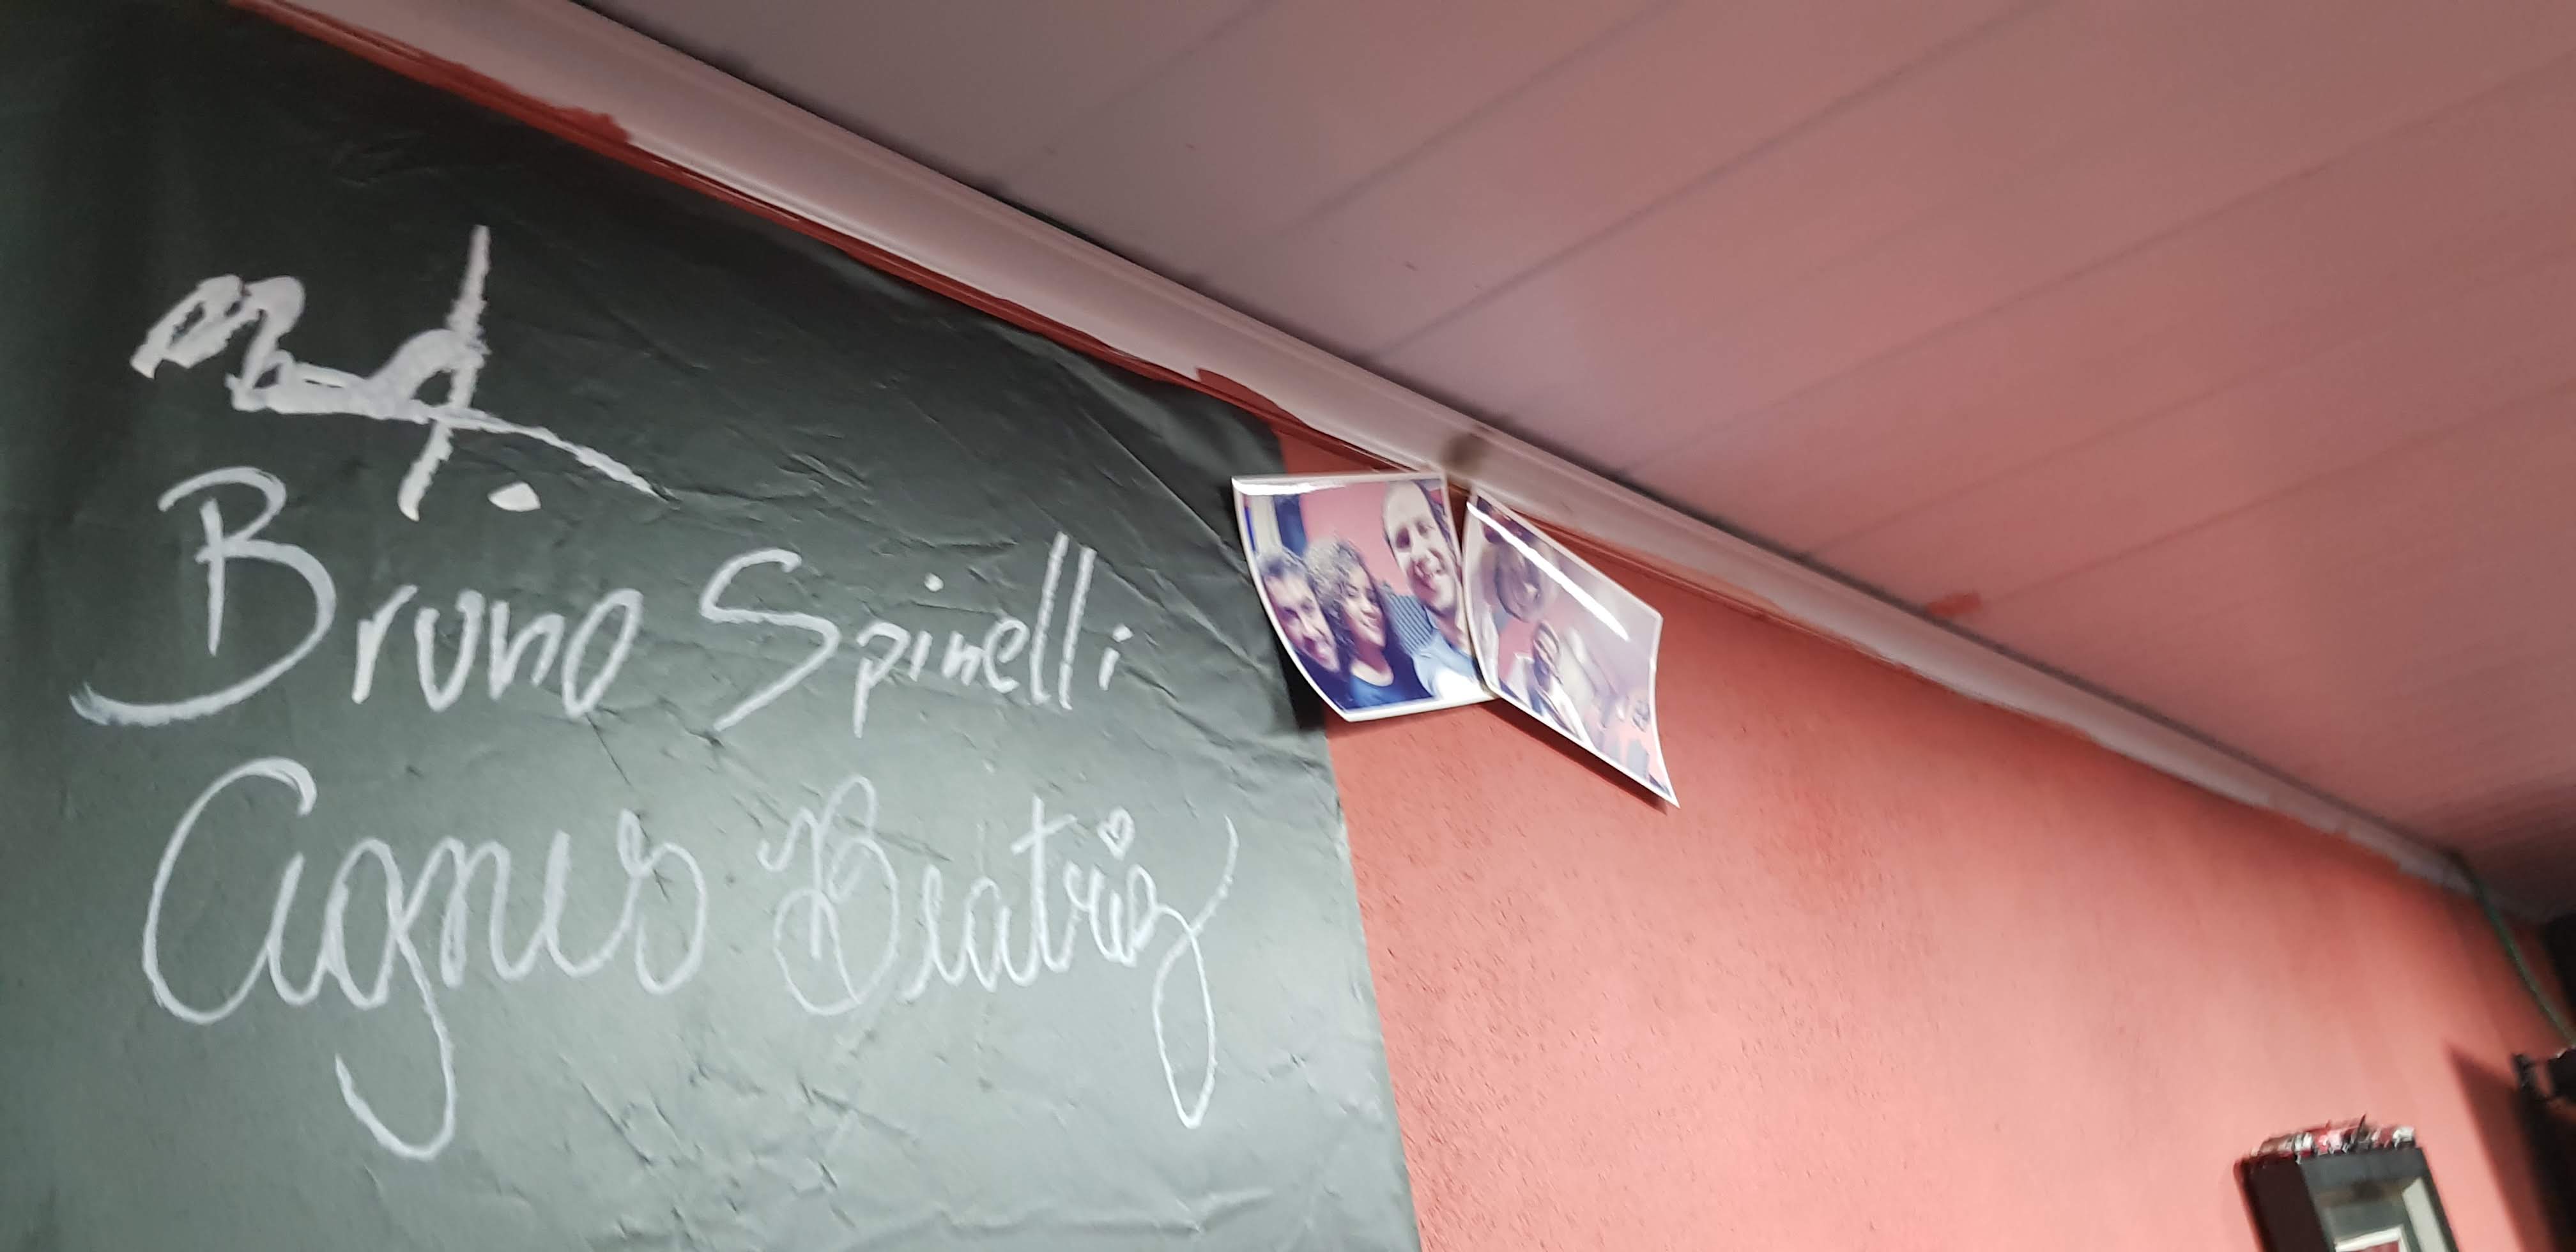 Bruno Spinelli
Agnes Beatriz